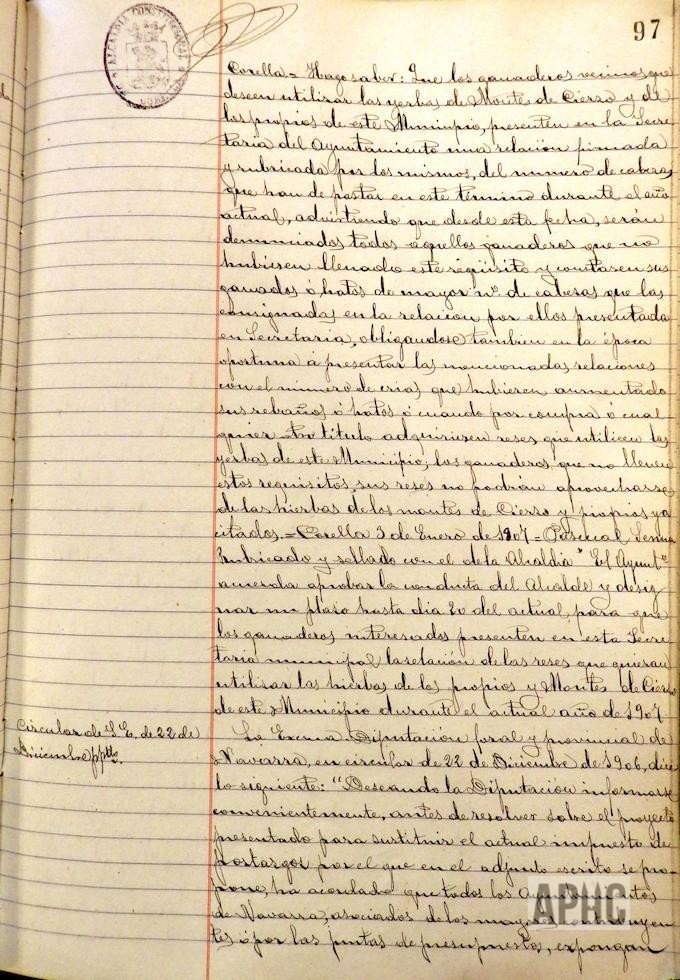 97
ALCALDIA CONSTITUCIONAL
CORELLA
Corella = Hago saber: Que los ganaderos vecinos que
deseen utilizar las yerbas de Montes de Cierzo y de
los propios de este Municipio, presenten en la Secre-
taria del Ayuntamiento una relación firmada
y rubricada por los mismos, del numero de cabezas
que han de pastar en este término durante el año
actual, advirtiendo que desde esta fecha, serán
denunciados todos aquellos ganaderos que no
hubiesen llenado este reqüisito y contasen sus
ganados ó hatos de mayor nº. de cabezas que las
consignadas en la relacion por ellos presentada
en Secretaria, obligandose tambien en la época
oportuna á presentar las mencionadas relaciones
con el número de crias que hubieren aumentado
sus rebaños ó hatos ó cuando por compra ó cual
quier otro título adquiriesen reses que utilicen las
yerbas de este Municipio; los ganaderos que no llenen
estos requisitos, sus reses no podrán aprovecharse
de las hierbas de los montes de Cierzo y propios ya
citados. = Corella 3 de Enero de 1907 = Pascual Sesma
Rubricado y sellado con el de la Alcaldia" El Ayuntº
acuerda aprobar la conducta del Alcalde y desig
nar un plazo hasta dia 20 del actual, para que
los ganaderos interesados presenten en esta Secre
taria municipal la relación de las reses que quieran
utilizar las hierbas de los propios y Montes de Cierzo
de este Municipio durante el actual año de 1907
Circular de S. E. de 22 de
Diciembre ppdo.
La Excma Diputación foral y provincial de
Navarra, en circular de 22 de Diciembre de 1906, dice
lo siguiente: "Deseando la Diputación informarse
convenientemente, antes de resolver sobre el proyecto
presentado para sustituir el actual impuesto de
portazgos por el que en el adjunto escrito se pro-
pone, ha acordado que todos los Ayuntamientos
de Navarra, asociados de los mayores contribuyen
tes ó por las juntas de presupuestos, expongan
APHC